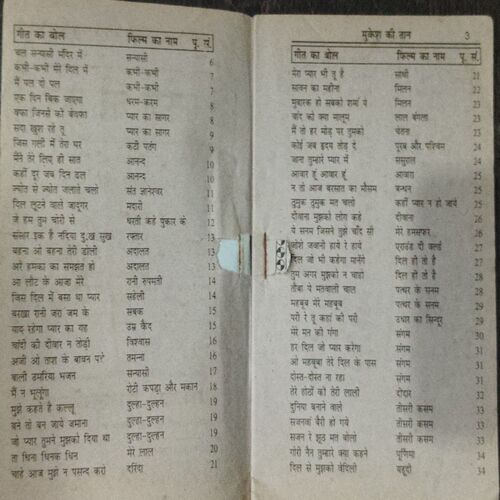 गीत का बोल फिल्म का नाम पृ. सं.
चल सन्यासी मंदिर में सन्यासी 6
कभी-कभी मेरे दिल में कभी-कभी 7
मैं पल दो पल कभी-कभी 7
एक दिन बिक जाएगा धरम-करम 8
वफा जिनसे की बेवफा प्यार का सागर 8
सदा खुश रहे तू प्यार का सागर 9
जिस गली में तेरा घर कटी पतंग 9
मैंने तेरे लिए ही सात आनन्द 10
कहीं दूर जब दिन ढल आनन्द 10
ज्योत से ज्योत जलाते चलो संत ज्ञानेश्वर 11
दिल लूटने वाले जादूगर मदारी 11
जे हम तुम चोरी से धरती कहे पुकार के 12
संसार इक है नदिया दु:ख सुख रफ्तार 13
बहना ओ बहना तेरी डोली अदालत 13
अरे हमका का समझत हो अदालत 13
आ लौट के आजा मेरे रानी रुपमती 14
जिस दिल में बसा था प्यार सहेली 14
बरखा रानी जरा जम के सबक 15
याद रहेगा प्यार का यह उम्र कैद 15
चांदी की दीवार न तोड़ी विश्वास 16
अजी ओ ताश के बावन पत्ते तमन्ना 16
बाली उमरिया भजन सन्यासी 17
मैं न भूलूंगा रोटी कपड़ा और मकान 18
मुझे कहते है कल्लू दुल्हा-दुल्हन 19
बने तो बन जाये जमाना दुल्हा-दुल्हन 19
जो प्यार तुमने मुझको दिया था दुल्हा-दुल्हन 19
ता थिना थिनक धिन मेरे लाल 20
चाहे आज मुझे न पसन्द करो दरिंदा 21
मुकेश की तान 3
गीत का बोल फिल्म का नाम पृ. सं.
मेरा प्यार भी तु है साथी 21
सावन का महीना मिलन 22
मुबारक हो सबको शमां ये मिलन 23
चांद को क्या मालूम लाल बंगला 23
मैं तो हर मोड़ पर तुमको चेतना 23
कोई जब हृदय तोड़ दे पूरब और पश्चिम 24
जाना तुम्हारे प्यार में ससुराल 24
आवारा हूं आवारा हूं आवारा 25
न तो आज बरसात का मौसम बन्धन 25
ठुमुक ठुमुक मत चलो कहीं प्यार न हो जाये 25
दीवाना मुझको लोग कहे दीवाना 26
ये सनम जिसने तुझे चाँद सी मेरे हमसफर 26
जोशे जवानी हाये रे हाये अराउंड दी वर्ल्ड 27
दिल जो भी कहेगा मानेंगे दिल ही तो है 27
तुम अगर मुझको न चाहो दिल ही तो है 28
तौबा ये मतवाली चाल पत्थर के सनम 28
महबूब मेरे महबूब पत्थर के सनम 29
परी रे तू कहां की परी उधार का सिन्दूर 29
मेरे मन की गंगा संगम 30
हर दिल जो प्यार करेगा संगम 31
ओ महबूबा तेरे दिल के पास संगम 31
दोस्त-दोस्त ना रहा संगम 31
तेरे होठों को तेरी लाली दीदार 32
दुनिया बनाने वाले तीसरी कसम 33
सजनवां बैरी हो गये तीसरी कसम 33
सजन रे झूठ मत बोलो तीसरी कसम 33
गोरी नैन तुम्हारे क्या कहने पूर्णिमा 34
दिल से मुझको बेदिली यहूदी 34